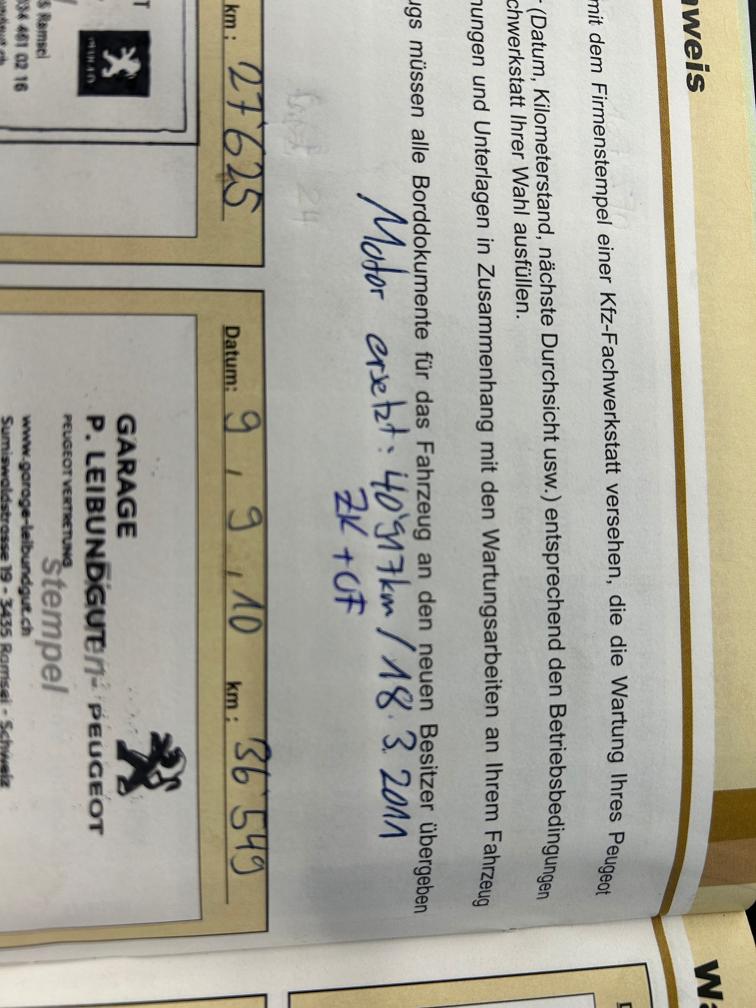 weis
mit dem Firmenstempel einer Kfz-Fachwerkstatt versehen, die die Wartung Ihres Peugeot
(Datum, Kilometerstand, nächste Durchsicht usw.) entsprechend den Betriebsbedingungen
chwerkstatt Ihrer Wahl ausfüllen.
nungen und Unterlagen in Zusammenhang mit den Wartungsarbeiten an Ihrem Fahrzeug
ugs müssen alle Borddokumente für das Fahrzeug an den neuen Besitzer übergeben
Motor ersetzt: 40'917km / 18.3.2011
ZK + GF
km: 27'625
T
S Ramsei
034 461 02 16
Datum: 9.9.10 km: 36'549
GARAGE
P. LEIBUNDGUT PEUGEOT
PEUGEOT VERTRETUNG
stempel
www.garage-leibundgut.ch
Sumiswaldstrasse 19 - 3435 Ramsei - Schweiz
Wa